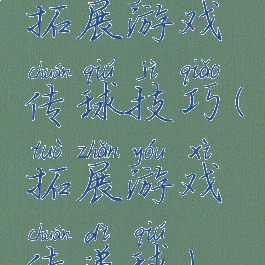 拓展游戏
chuán qiú jì qiǎo
传球技巧(
tuò zhǎn yóu xì
拓展游戏
chuán dì qiú
传递球)